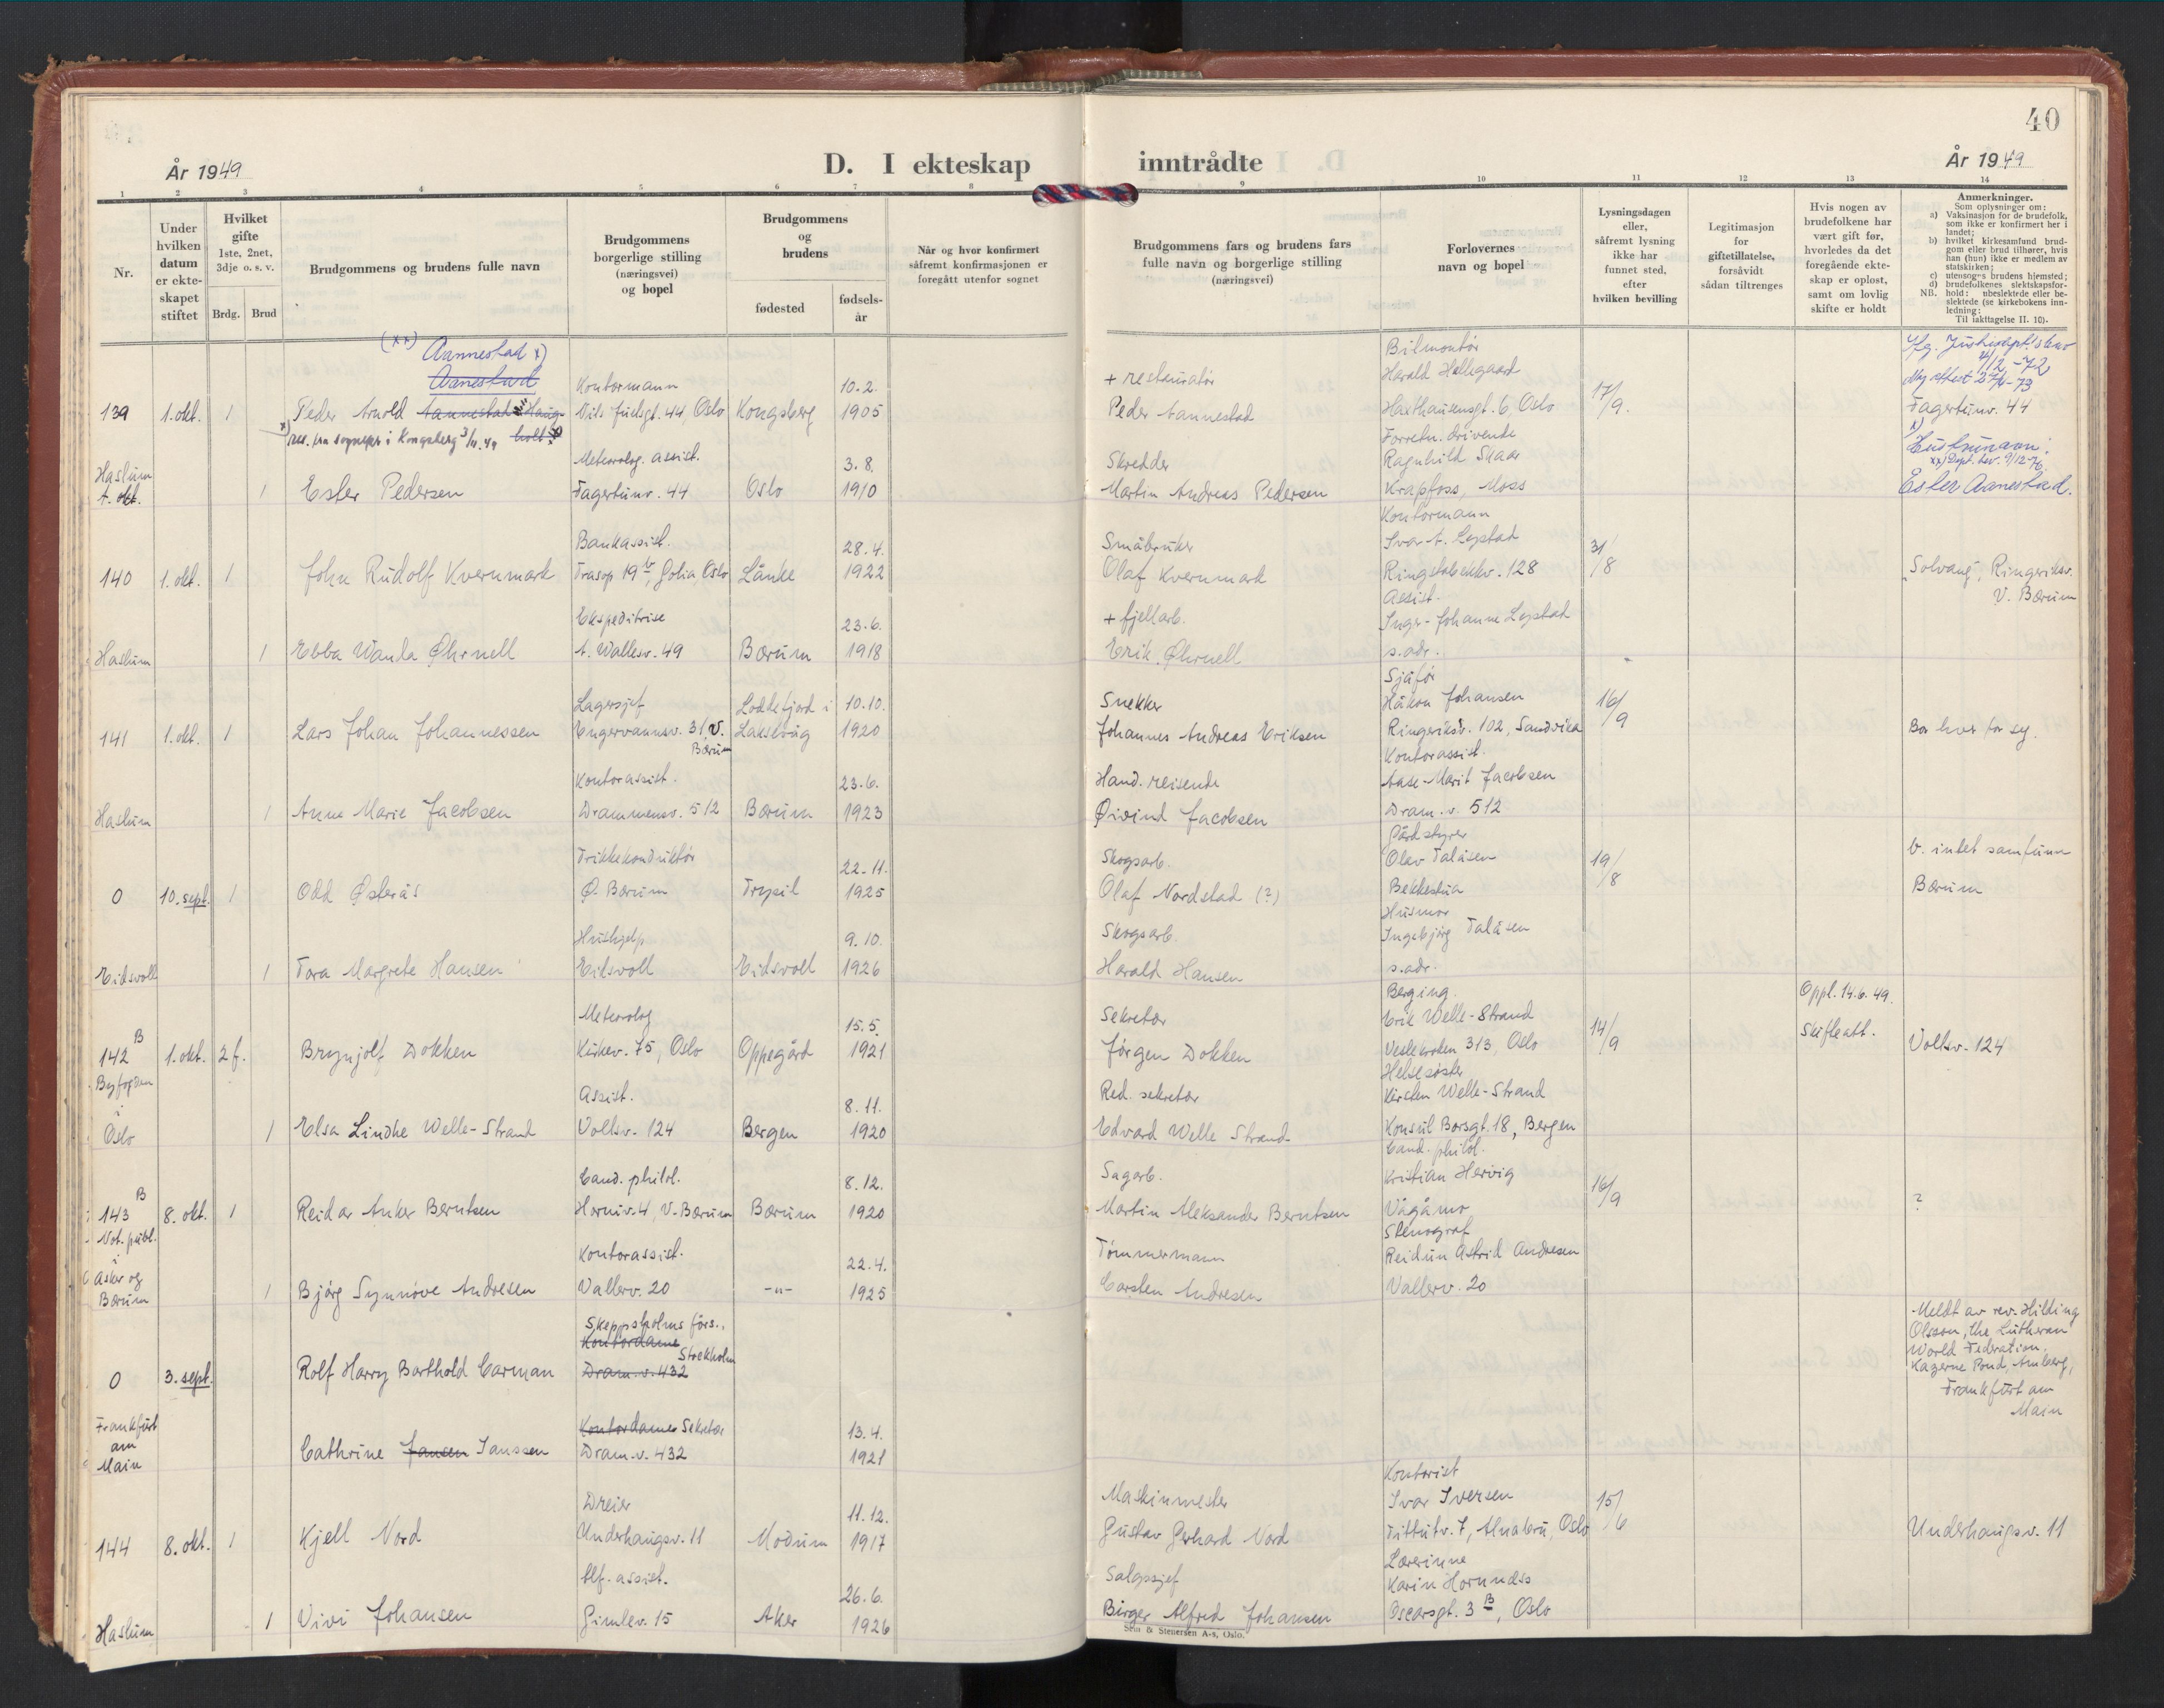 40
År 1949
D. I ekteskap inntrådte
År 1949
1 2 3 4 5 6 7 8 9 10 11 12 13 14
Nr.
Under hvilken datum er ekte-skapet stiftet
Hvilket gifte
1ste, 2net, 3dje o. s. v.
Brdg. Brud
Brudgommens og brudens fulle navn
Brudgommens borgerlige stilling (næringsvei) og bopel
Brudgommens og brudens
fødested
fødsels-år
Når og hvor konfirmert såfremt konfirmasjonen er foregått utenfor sognet
Brudgommens fars og brudens fars fulle navn og borgerlige stilling (næringsvei)
Forlovernes navn og bopel
Lysningsdagen eller, såfremt lysning ikke har funnet sted, efter hvilken bevilling
Legitimasjon for giftetillatelse, forsåvidt sådan tiltrenges
Hvis nogen av brudefolkene har vært gift før, hvorledes da det foregående ekte-skap er opløst, samt om lovlig skifte er holdt
Anmerkninger.
Som oplysninger om:
a) Vaksinasjon for de brudefolk, som ikke er konfirmert her i landet;
b) hvilket kirkesamfund brud-gom eller brud tilhører, hvis han (hun) ikke er medlem av statskirken;
c) utensogns brudens hjemsted;
d) brudefolkenes slektskapsfor-hold: ubeslektede eller be-slektede (se kirkebokens inn-ledning:
NB. Til iakttagelse II. 10).
(xx) Aannestad x)
Aanestad
139 1.okt. 1 Peder Arnold Aannestad Haug-holt
x) res. fra sogneprs i Kongsberg 3/11.49
Kontormann
Nils Juelsgt. 44, Oslo
Kongsberg
10.2.
1905
+ restauratør
Peder Aannestad
Bilmontør
Harald Hellegaard
Haxthausensgt. 6, Oslo
17/9.
4/12-72
Ny attest 27/6-73
Fagertunv. 44
Haslum
1. okt.
1 Ester Pedersen
Meteorolog. assist.
Fagertunv. 44
Oslo
3.8.
1910
Skredder
Martin Andreas Pedersen
Forretn. drivende
Ragnhild Skaar
Krapfoss, Moss
x)
Hustrunavn:
xx) Dept. bev. 9/12-76.
Ester Aanestad.
140 1.okt. 1 John Rudolf Kvernmark
Bankassist.
Trasop 19 b, Golia, Oslo
Lånke
28.4.
1922
Småbruker
Olaf Kvernmark
Kontormann
Ivar A. Lepstad
Ringstabekkv. 128
31/8
"Solvang", Ringeriksv.
V. Bærum
Haslum 1 Ebba Wanda Øhrnell
Ekspeditrise
A. Wallesv. 49
Bærum
23.6.
1918
+ fjellarb.
Erik Øhrnell
Assist.
Inger-Johanne Lepstad
s.adr.
141 1.okt. 1 Lars Johan Johannessen
Lagersjef
Engervannsv. 31, V. Bærum
Loddefjord i Laksevåg
10.10.
1920
Snekker
Johannes Andreas Eriksen
Sjåfør
Håkon Johansen
Ringeriksv. 102, Sandvika
16/9
Bor hver for seg.
Haslum 1 Anne Marie Jacobsen
Kontorassist.
Drammensv. 512
Bærum
23.6.
1923
Hand. reisende
Øivind Jacobsen
Kontorassist.
Aase-Marit Jacobsen
Dram.v. 512
0 10.sept. 1 Odd Østerås
Trikkekonduktør
Ø. Bærum
Trysil
22.11.
1925
Skogsarb.
Olaf Nordstad (?)
Gårdstyrer
Olav Talåsen
Bekkestua
19/8
b. intet samfunn
Bærum
Eidsvoll 1 Tora Margrete Hansen
Hushjelp
Eidsvoll
Eidsvoll
9.10.
1926
Skogsarb.
Harald Hansen
Husmor
Ingebjørg Talåsen
s.adr.
142 B 1.okt. 2 f. Brynjolf Dokken
Meteorolog
Kirkev. 75, Oslo
Oppegård
15.5.
1921
Sekretær
Jørgen Dokken
Berging.
Erik Welle-Strand
Veslekroken 313, Oslo
14/9
Oppl. 14.6.49.
Skifteatt.
Vollsv. 124
Byfogden i Oslo 1 Elsa Lindhe Welle-Strand
Assist.
Vollsv. 124
Bergen
8.11.
1920
Red. sekretær
Edvard Welle Strand
Helsesøster
Kirsten Welle-Strand
Konsul Børsgt. 18, Bergen
143 B 8.okt. 1 Reidar Anker Berntsen
Cand. philol.
Horniv. 4, V. Bærum
Bærum
8.12.
1920
Sagarb.
Martin Aleksander Berntsen
Cand. philol.
Kristian Hervig
Vågåmo
16/9
?
Not. publ. i Asker og Bærum 1 Bjørg Synnøve Andresen
Kontorassist.
Vallerv. 20
-"-
22.4.
1925
Tømmermann
Carsten Andresen
Stenograf
Reidun Astrid Andresen
Vallerv. 20
0 3.sept. Rolf Harry Barthold Carman
Skeppsholms förs.,
Kontordame
Stockholm
Dram.v. 432
Meldt av rev. Hilding
Olsson, the Lutheran
World Federation,
Kazerne Pond, Amberg,
Frankfurt am
Main
Frankfurt am Main Cathrine Jansen Janssen
Kontordame Sekretær
Dram.v. 432
13.4.
1921
144 8.okt. 1 Kjell Nord
Dreier
Underhaugsv. 11
Modum
11.12.
1917
Maskinmester
Gustav Gerhard Nord
Kontorist
Ivar Iversen
Tittutv. 7, Alnabru, Oslo
15/6
Underhaugsv. 11
Haslum 1 Vivi Johansen
tlf. assist.
Gimlev. 15
Aker
26.6.
1926
Salgssjef
Birger Alfred Johansen
Lærerinne
Karin Hornnæss
Oscarsgt. 3 B, Oslo
Sem & Stenersen A-s, Oslo.